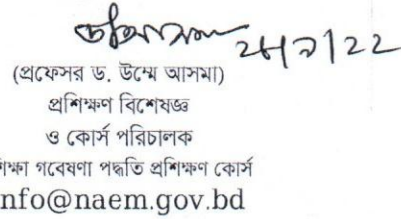 (প্রফেসর ড. উম্মে আসমা)
প্রশিক্ষণ বিশেষজ্ঞ
ও কোর্স পরিচালক
শিক্ষা গবেষণা পদ্ধতি প্রশিক্ষণ কোর্স
nfo@naem.gov.bd